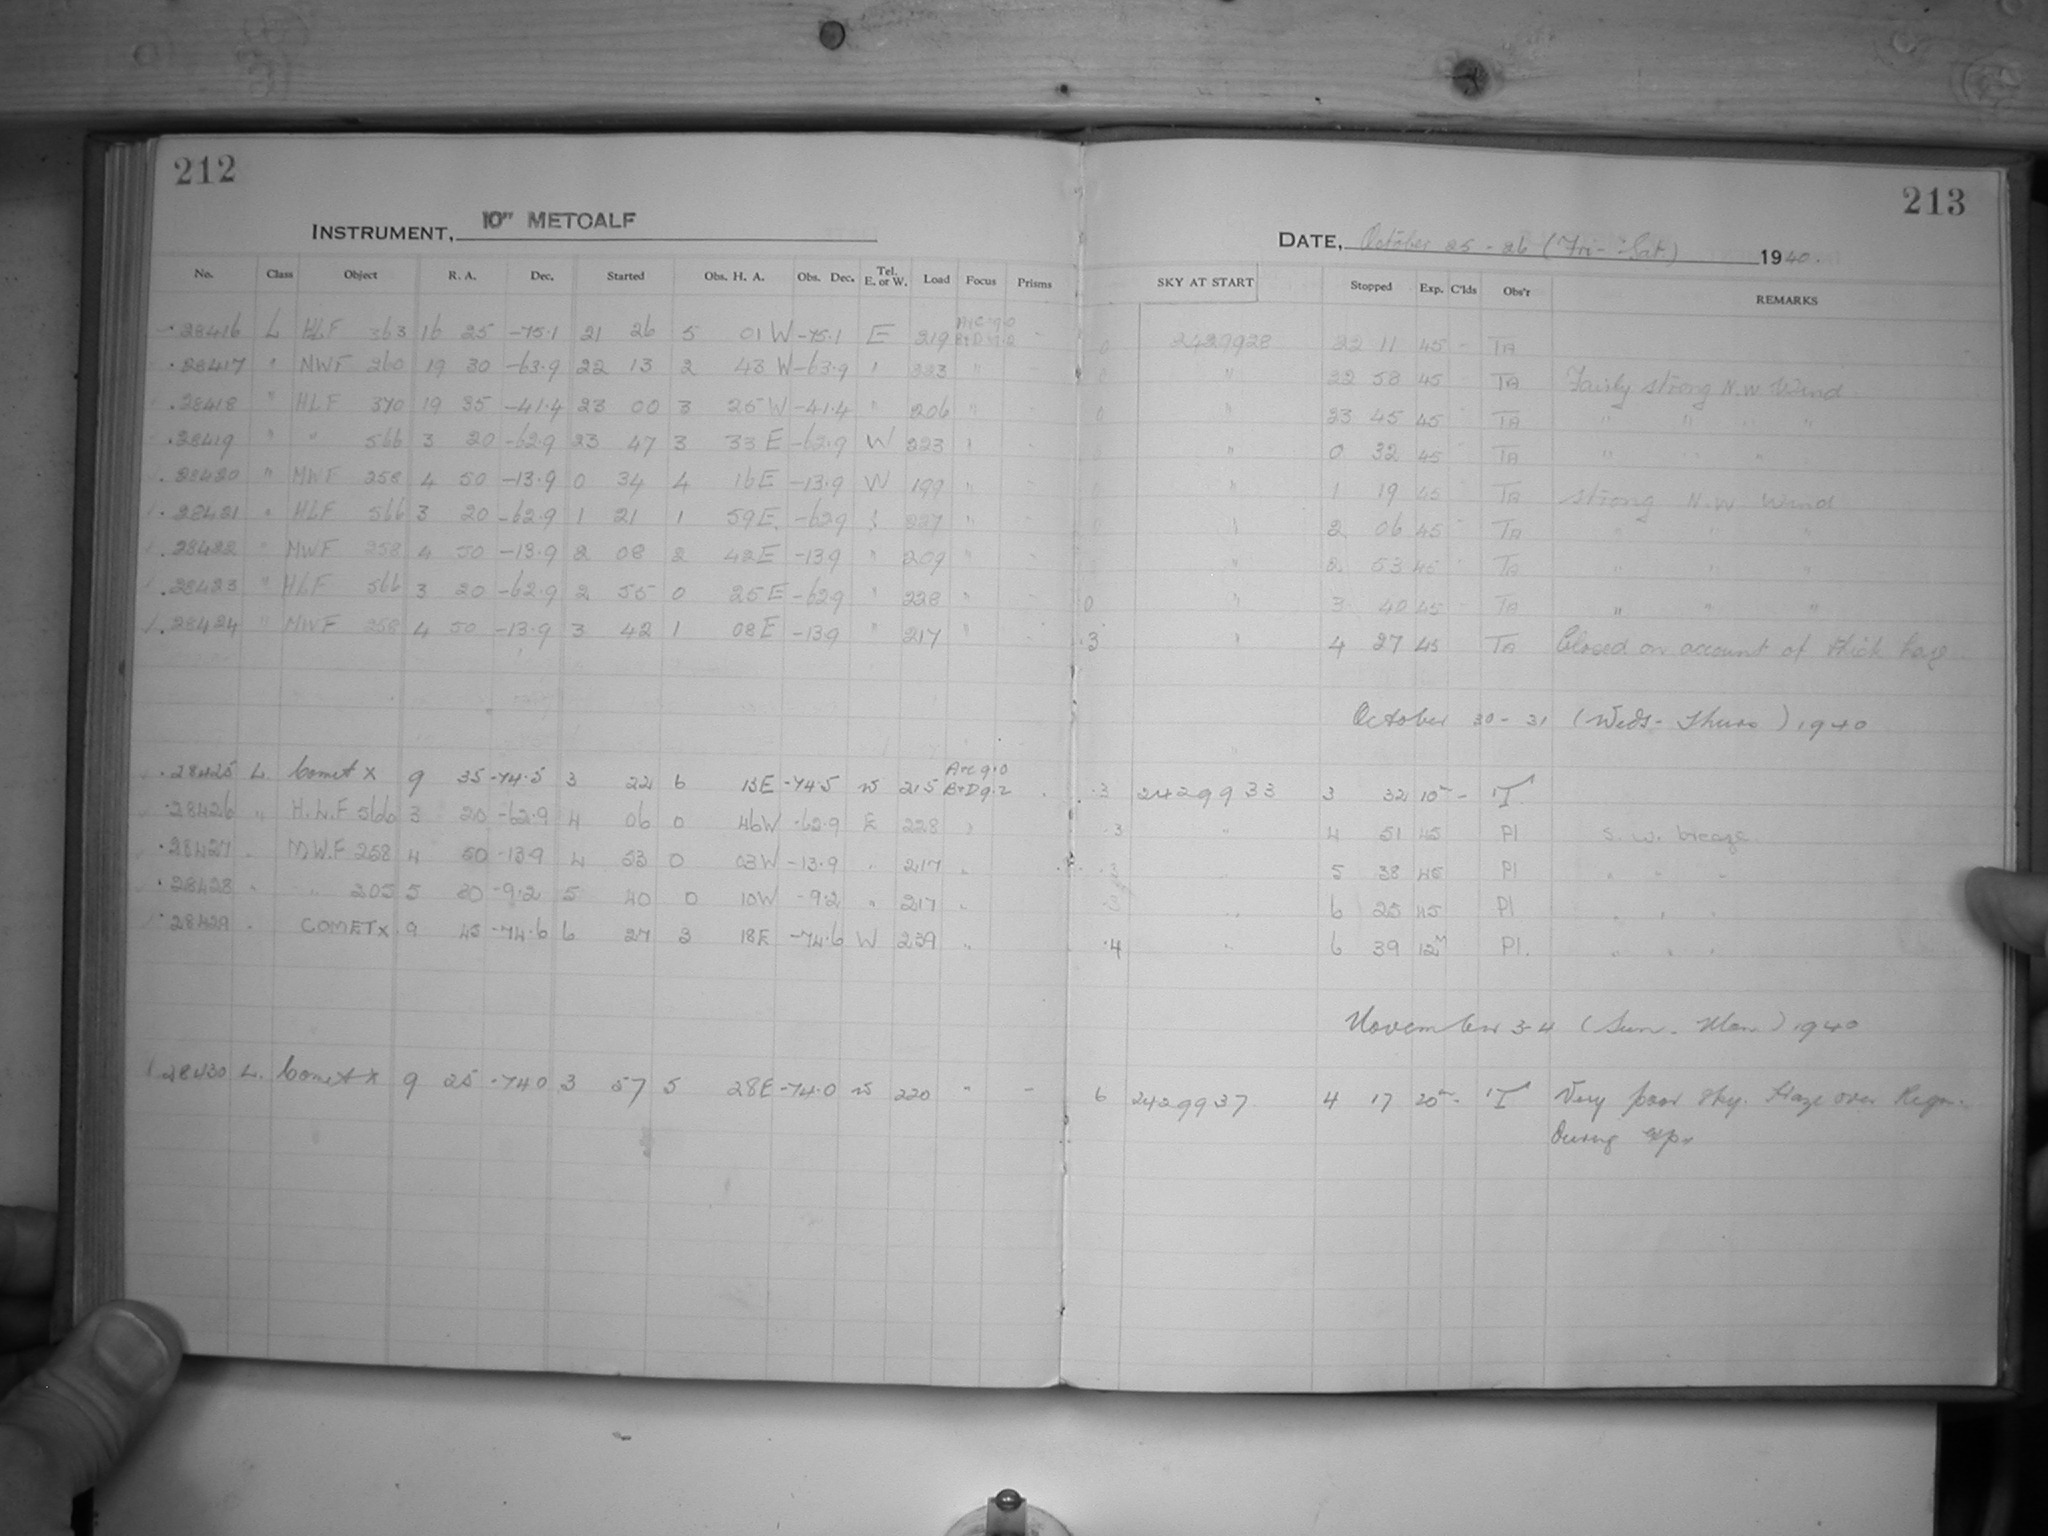 212
213
INSTRUMENT, 10" METCALF
DATE, October 25-26 (Fri-Sat.) 1940.
No. Class Object R. A. Dec. Started Obs. H. A. Obs. Dec. Tel. E. or W. Load Focus Prisms SKY AT START Stopped Exp. C'lds Obs'r REMARKS
28416 L HLF 363 16 25 -75.1 21 26 5 01 W -75.1 E 219 0 2429928 22 11 45 - TA
28417 " MWF 260 19 30 -63.9 22 13 2 43 W -63.9 " 223 " " 22 58 45 TA Fairly strong N.W Wind
28418 " HLF 370 19 35 -41.4 23 00 3 25 W -41.4 " 206 " 0 " 23 45 45 TA " " " "
28419 " " 566 3 20 -62.9 23 47 3 33 E -62.9 W 223 " " 0 32 45 TA " " "
28420 " MWF 258 4 50 -13.9 0 34 4 16 E -13.9 W 199 " " 1 19 45 TA strong N.W Wind
28421 " HLF 566 3 20 -62.9 1 21 1 59 E -62.9 " 227 " " 2 06 45 TA " " "
28422 " MWF 258 4 50 -13.9 2 08 2 42 E -13.9 " 209 " " 2 53 45 TA " " "
28423 " HLF 566 3 20 -62.9 2 55 0 25 E -62.9 " 228 " 0 " 3 40 45 TA " " "
28424 " MWF 258 4 50 -13.9 3 42 1 08 E -13.9 " 217 " .3 " 4 27 45 TA Closed on account of thick haze.
October 30-31 (Weds-Thurs) 1940
28425 L. Comet x 9 35 -74.5 3 22 6 13 E -74.5 W 215 A+C 9.0 B+D 9.2 .3 2429933 3 32 10m - T.
28426 " H.L.F 566 3 20 -62.9 4 06 0 46 W -62.9 E 228 " .3 " 4 51 45 Pl S.W. breeze
28427 " M.W.F 258 4 50 -13.9 4 53 0 03 W -13.9 " 217 " .3 " 5 38 45 Pl " " "
28428 " " 205 5 30 -9.2 5 40 0 10 W -9.2 " 217 " .3 " 6 25 45 Pl " " "
28429 " COMET x 9 45 -74.6 6 27 3 18 E -74.6 W 239 " .4 " 6 39 12M Pl. " " "
November 3-4 (Sun. Mon.) 1940
28430 L. Comet x 9 25 -74.0 3 57 5 28 E -74.0 W 220 " - 6 2429937 4 17 20m - T Very poor sky. Haze over Region
during exp.